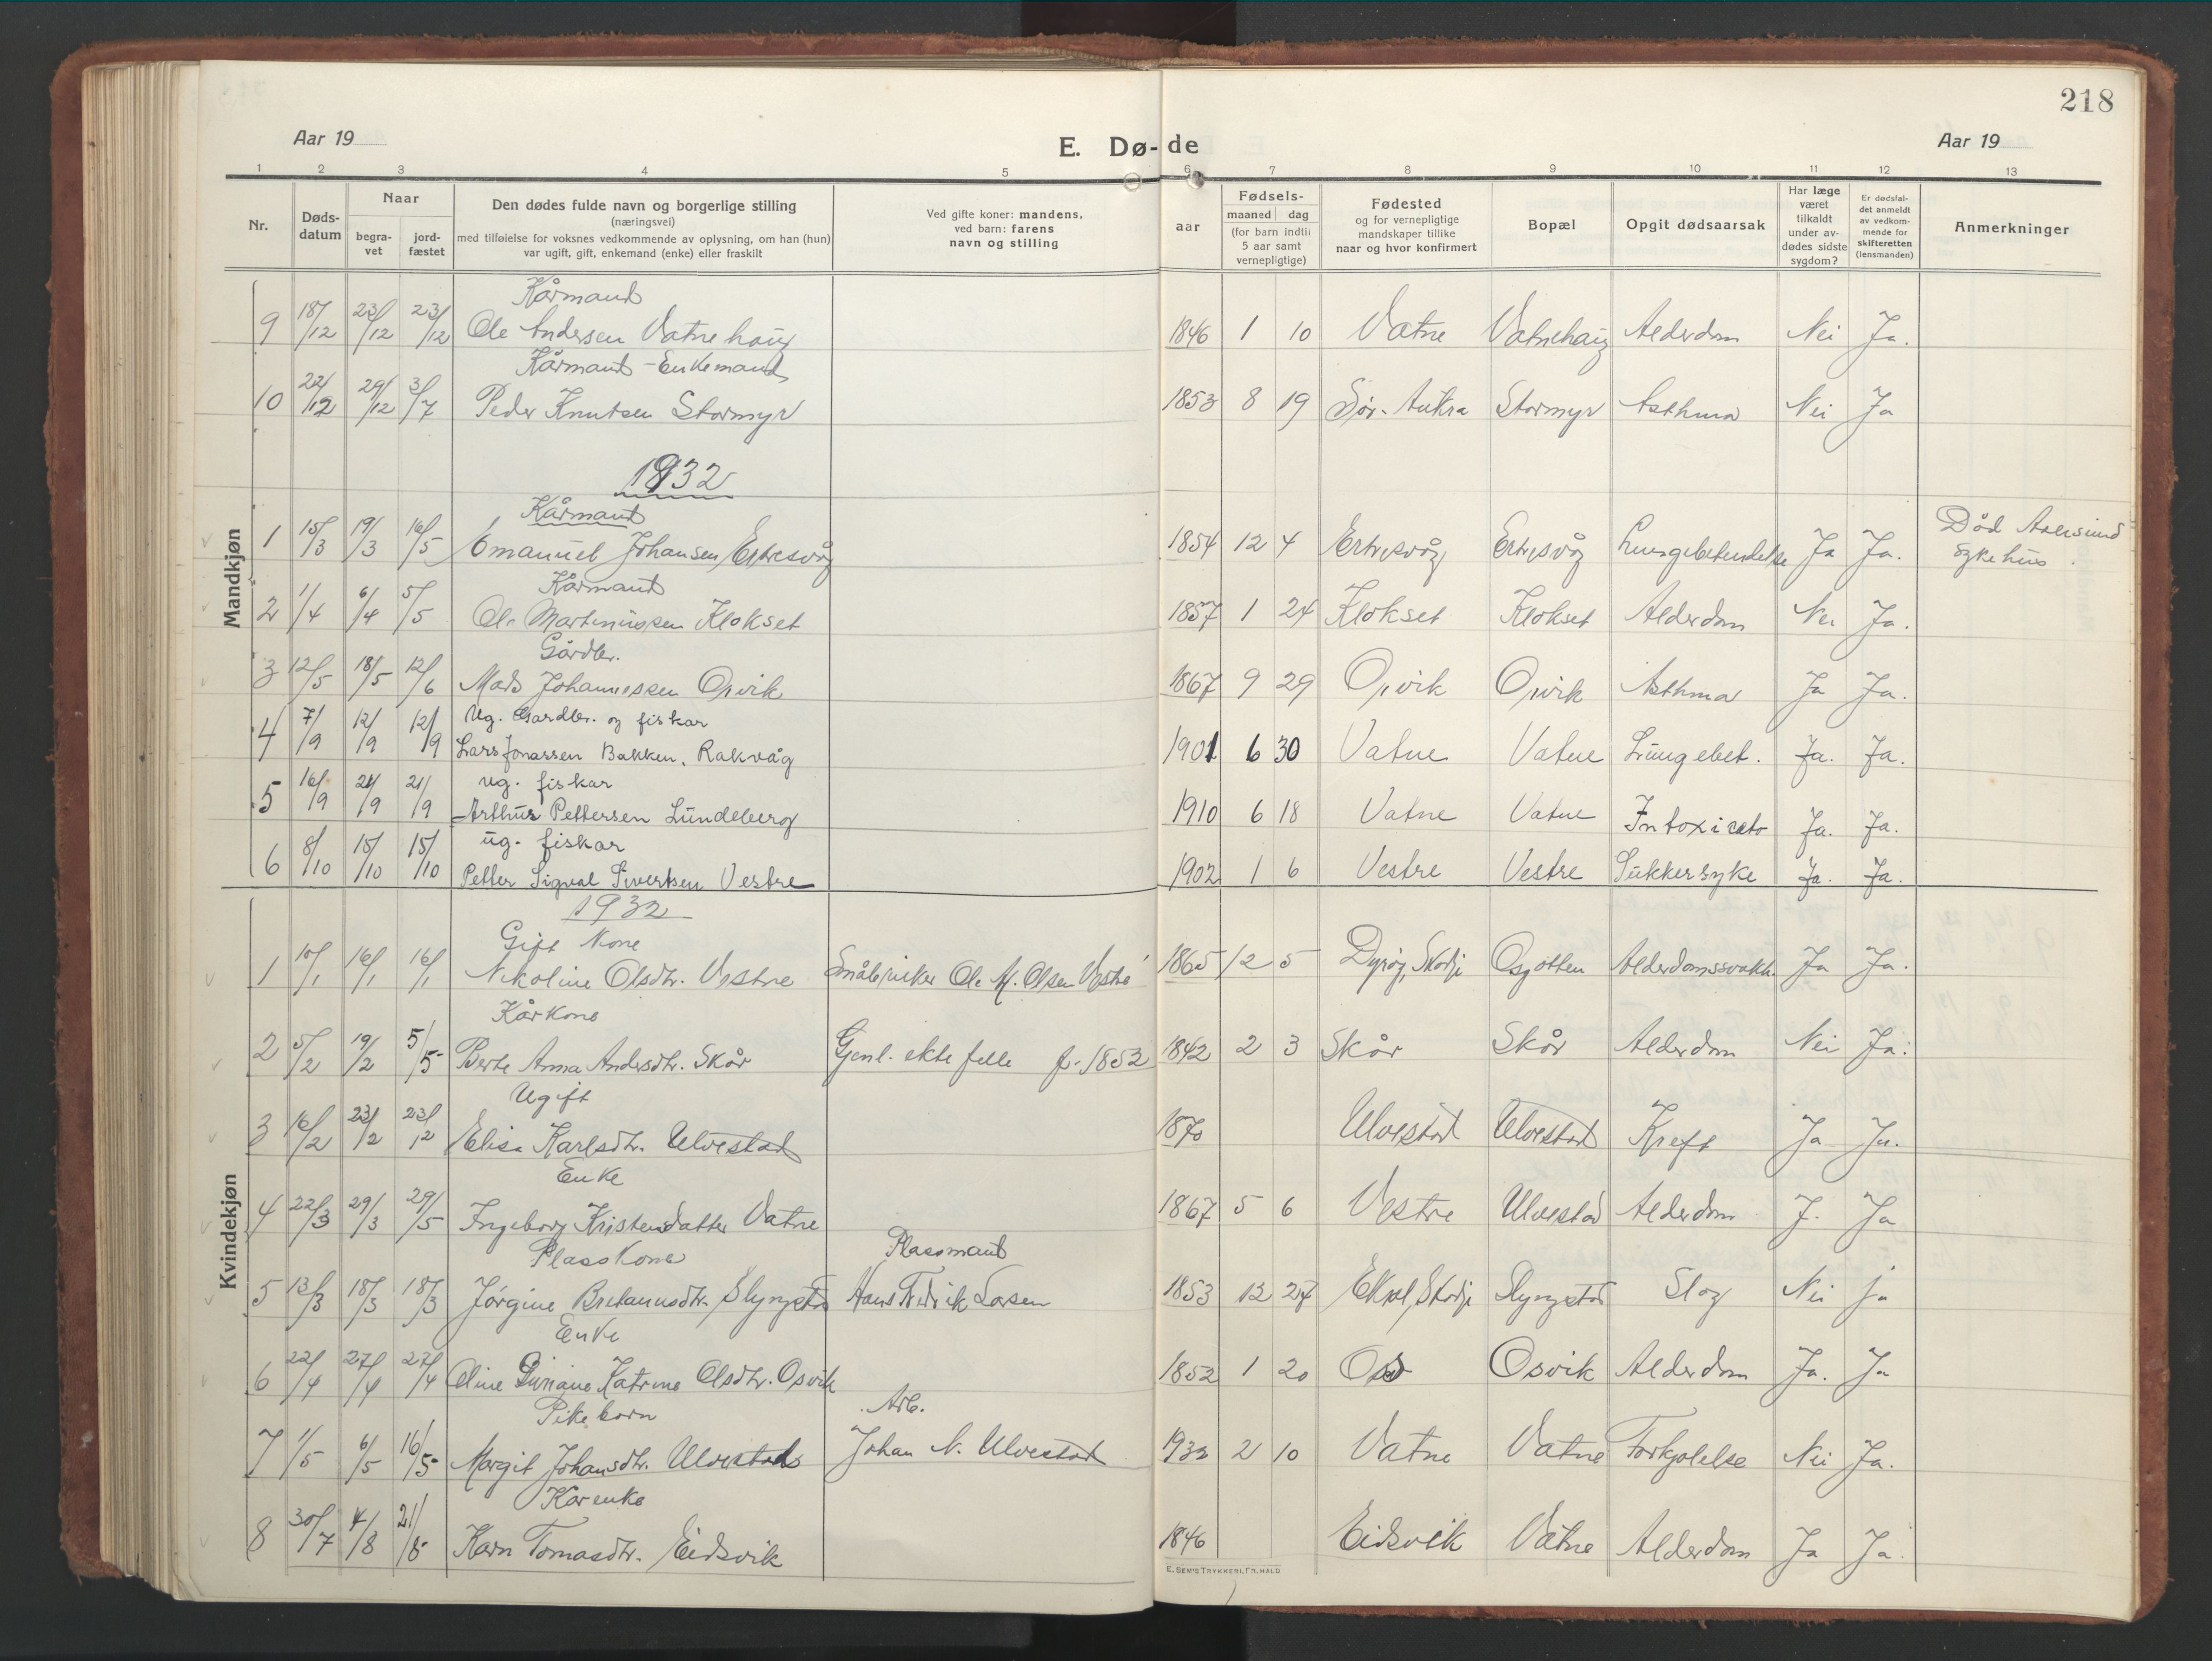 218
Aar 19
E. Dø-de
Aar 19
1 2 3 4 5 6 7 8 9 10 11 12 13
Nr.
Døds-
datum
Naar
begra-
vet
jord-
fæstet
Den dødes fulde navn og borgerlige stilling
(næringsvei)
med tilføielse for voksnes vedkommende av oplysning, om han (hun)
var ugift, gift, enkemand (enke) eller fraskilt
Ved gifte koner: mandens,
ved barn: farens
navn og stilling
Fødsels-
aar
maaned dag
(for barn indtil
5 aar samt
vernepligtige)
Fødested
og for vernepligtige
mandskaper tillike
naar og hvor konfirmert
Bopæl
Opgit dødsaarsak
Har læge
været
tilkaldt
under av-
dødes sidste
sygdom?
Er dødsfal-
det anmeldt
av vedkom-
mende for
skifteretten
(lensmanden)
Anmerkninger
Mandkjøn
Kårmand
9 18/12 23/12 23/12 Ole Andersen Vatnehaug 1846 1 10 Vatne Vatnehaug Alderdom Nei Ja.
Kårmand - Enkemand
10 22/12 29/12 3/7 Peder Knutsen Stormyr 1853 8 19 Sør-Aukra Stormyr Asthma Nei Ja
1932
Kårmand
1 15/3 19/3 16/5 Emanuel Johansen Ertresvåg 1854 12 4 Ertresvåg Ertresvåg Lungebetendelse Ja Ja. Død
Sykehus.
Kårmand
2 1/4 6/4 5/5 Ole Martinussen Klokset 1857 1 24 Klokset Klokset Alderdom Nei Ja.
Gårdbr.
3 12/5 18/5 12/6 Mads Johannessen Opvik 1867 9 29 Opvik Opvik Asthma Ja Ja.
Ug. Gardbr. og fiskar
4 7/9 12/9 12/9 Lars Jonassen Bakken, Rakvåg 1901 6 30 Vatne Vatne Lungebet. Ja. Ja.
ug. fiskar
5 16/9 21/9 21/9 Arthur Pettersen Lundeberg 1910 6 18 Vatne Vatne Ja. Ja.
ug. fiskar
6 8/10 15/10 15/10 Petter Sigval Sivertsen Vestre 1902 1 6 Vestre Vestre Sukkersyke Ja. Ja.
Kvindekjøn
1932
Gift Kone
1 10/1 16/1 16/1 Nikoline Olsdtr. Vestre Småbruker Ole M. Olsen Vestre 1865 12 5 Skodje Alderdomssvakh. Ja Ja.
Kårkone
2 5/2 19/2 5/5 Berte Anna Andersdtr. Skår Gjenl. ektefelle f. 1852 1842 2 3 Skår Skår Alderdom Nei Ja.
Ugift
3 16/2 23/2 23/2 Elisa Karlsdtr. Ulvestad 1870 Ulvestad Ulvestad Kreft Ja Ja.
Enke
4 22/3 29/3 29/5 Ingeborg Kristensdatter Vatne 1867 5 6 Vestre Ulvestad Alderdom J. Ja
Plasskone Plassmand
5 13/3 18/3 18/3 Jørgine Slyngstad Hans Fredrik Larsen 1853 12 27 Skodje Slyngstad Slag Nei ja
Enke
6 22/4 27/4 27/4 Oline Katrine Olsdtr. Osvik 1852 1 20 Osvik Alderdom Ja. Ja
Pikebarn Arb.
7 1/5 6/5 16/5 Margit Johansdtr. Ulvestad Johan N. Ulvestad 1932 2 10 Vatne Vatne Forkjølelse Nei Ja.
Kårenke
8 30/7 4/8 21/8 Karn Tomasdtr. Eidsvik 1846 Eidsvik Vatne Alderdom Ja Ja.
E. SEM'S TRYKKERI, FR.HALD